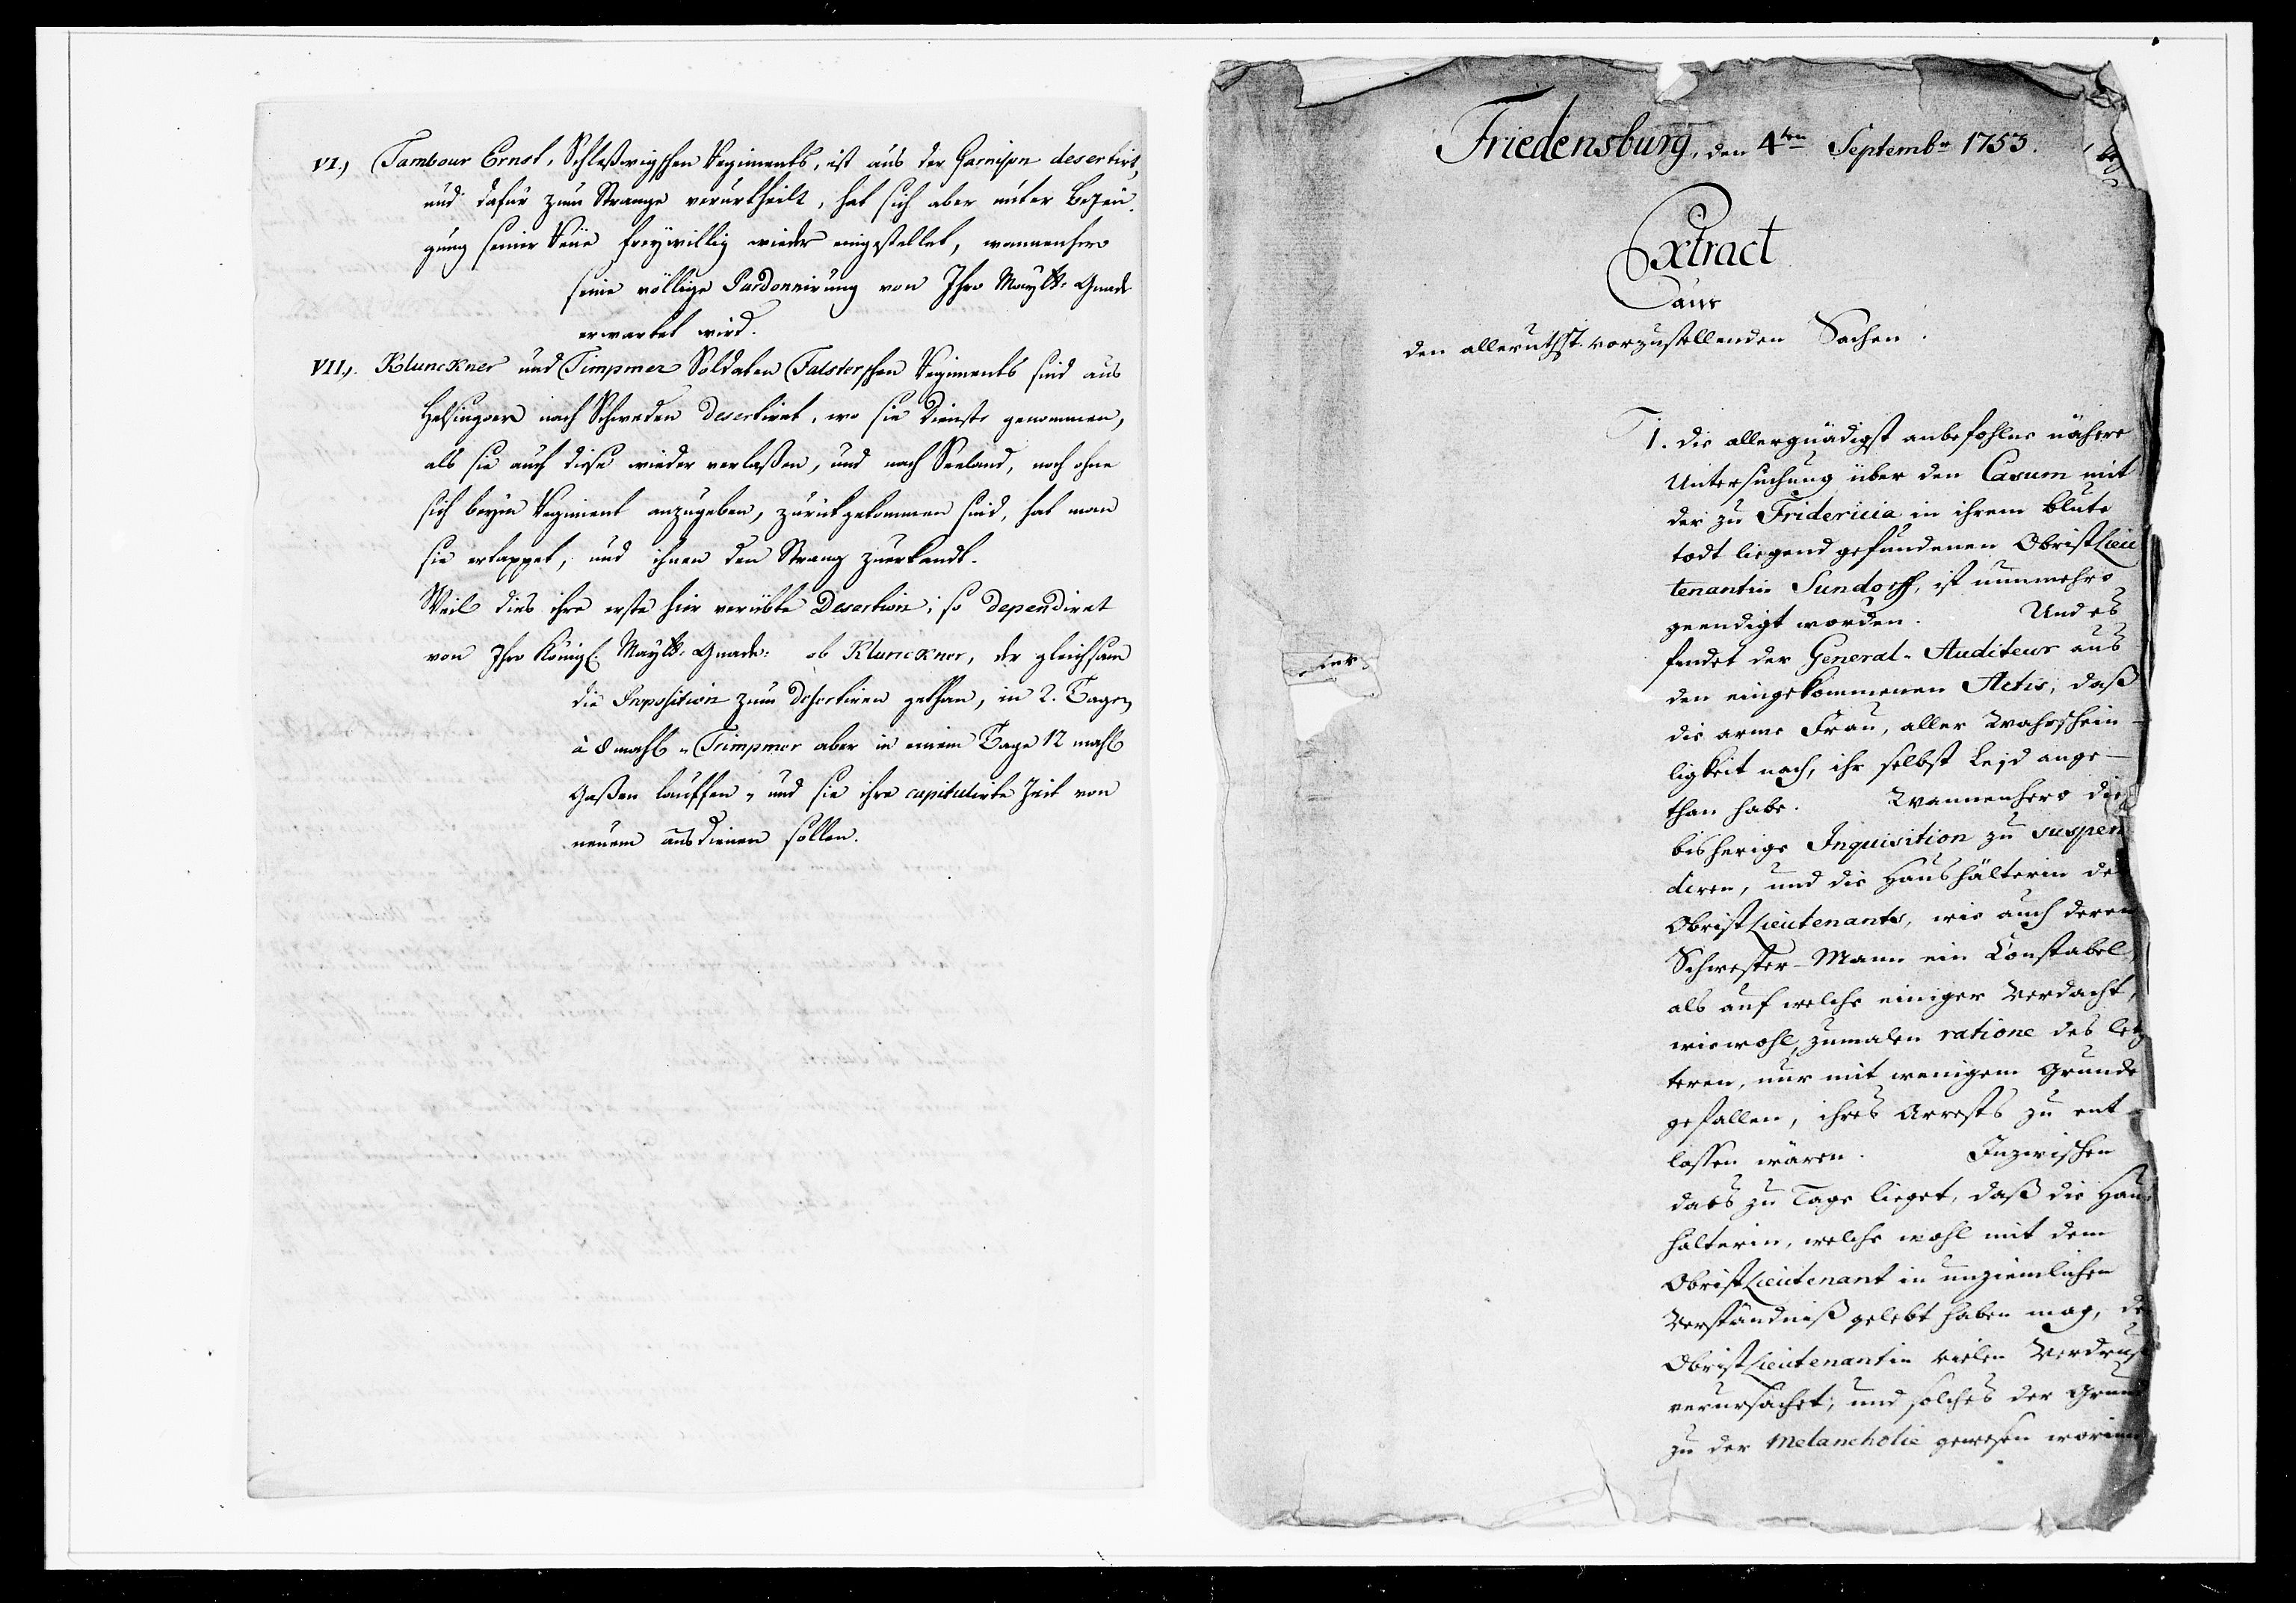 VI.) Tambour Ernst, Schleßwigschen Regiments, ist aus der Garnison desertirt,
und dafür zum Strange verurtheilt, hat sich aber unter Bezeu-
gung seiner Reüe freywillig wieder eingestellet, wannenhero
seine völlige Pardonnirung von Ihro Maytt. Gnade
erwartet wird.
VII.) Klunckner und Timpmer Soldaten Falsterschen Regiments sind aus
Helsingoer nach Schweden desertiret, wo sie Dienste genommen,
als sie auch diese wieder verlaßen, und nach Seeland, noch ohne
sich beym Regiment anzugeben, zurückgekommen sind, hat man
sie ertappet, und ihnen den Strang zuerkandt.
Weil dies ihre erste hier verübte Desertion; so dependiret
von Ihro Königl. Maytt. Gnade: ob Klunckner, der gleichsam
die Proposition zum desertiren gethan, in 2. Tagen
à 8 mahl, Timpmer aber in einem Tage 12 mahl
Gaßen lauffen, und sie ihre capitulirte Zeit von
neuem ausdienen sollen.
Friedensburg, den 4ten Septembr 1753.
Extract
aus
den alleruthst. vorzustellenden Sachen.
1. die allergnädigst anbefohlne nähere
Untersuchung über den Casum mit
der zu Fridericia in ihrem Blute
todt liegend gefundenen ObristLieu
tenantin Sundorff, ist nunmehro
geendigt worden. Und es
findet der General-Auditeur aus
den eingekommenen Actis, daß
die arme Frau, aller Wahrschein-
ligkeit nach, ihr selbst Leid ange-
than habe. Wannenhero die
bisherige Inquisition zu suspen
diren, und die Haushälterin de
ObristLieutenants, wie auch deren
Schwester-Mann ein Constabel,
als auf welche einiger Verdacht,
wiewohl, zumalen ratione des letz
teren, nur mit wenigem Grunde
gefallen, ihres Arrests zu ent-
lassen wären. Inzwischen
da es zu Tage lieget, daß die Haus
hälterin, welche wohl mit dem
ObristLieutenant in unziemlichen
Verständniß gelebt haben mag, de
ObristLieutenantin vielen Verdruß
verursachet, und solches der Grund
zu der Melancholie gewesen worinn